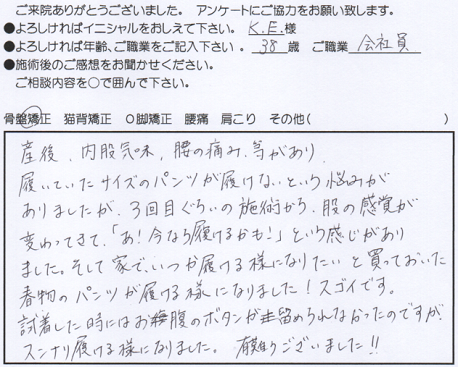 ご来院ありがとうございました。 アンケートにご協力をお願い致します。
●よろしければイニシャルをおしえて下さい。 K.E.様
●よろしければ年齢、ご職業をご記入下さい。 38 歳 ご職業 会社員
●施術後のご感想をお聞かせください。
ご相談内容を〇で囲んで下さい。
骨盤矯正 猫背矯正 O脚矯正 腰痛 肩こり その他( )
産後、内股気味、腰の痛み、等があり、
履いていたサイズのパンツが履けないという悩みが
ありましたが、3回目ぐらいの施術から、股の感覚が
変わってきて、「あ!今なら履けるかも!」という感じがあり
ました。そして家で、いつか履ける様になりたいと買っておいた
春物のパンツが履ける様になりました!スゴイです。
試着した時にはお腹のボタンが留められなかったのですが、
スンナリ履ける様になりました。 有難うございました!!